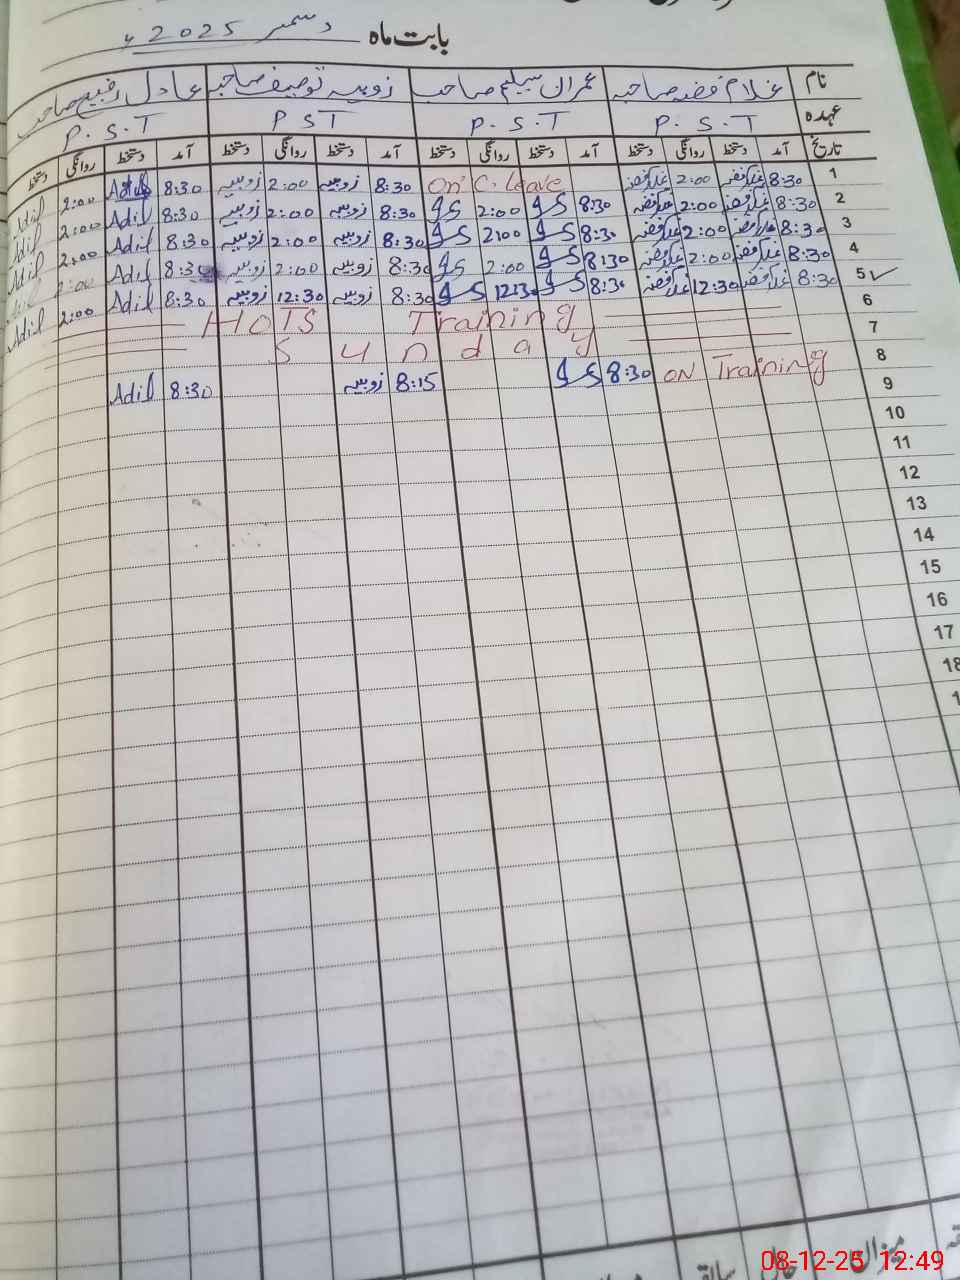 بابت ماہ دسمبر 2025ء
نام غلام فضہ صاحبہ عمران سلیم صاحب زوبیہ توصیف صاحبہ عادل رفیع صاحب
عہدہ P.S.T P.S.T PST P.S.T
تاریخ آمد دستخط روانگی دستخط آمد دستخط روانگی دستخط آمد دستخط روانگی دستخط آمد دستخط روانگی دستخط
1 8:30 غلام فضہ 2:00 غلام فضہ On C. Leave 8:30 زوبیہ 2:00 زوبیہ 8:30 Adil 2:00 Adil
2 8:30 غلام فضہ 2:00 غلام فضہ 8:30 IS 2:00 IS 8:30 زوبیہ 2:00 زوبیہ 8:30 Adil 2:00 Adil
3 8:30 غلام فضہ 2:00 غلام فضہ 8:30 IS 2:00 IS 8:30 زوبیہ 2:00 زوبیہ 8:30 Adil 2:00 Adil
4 8:30 غلام فضہ 2:00 غلام فضہ 8:30 IS 2:00 IS 8:30 زوبیہ 2:00 زوبیہ 8:30 Adil 2:00
5 8:30 غلام فضہ 12:30 غلام فضہ 8:30 IS 12:30 IS 8:30 زوبیہ 12:30 زوبیہ 8:30 Adil 2:00 Adil
6 HOTS Training
7 Sunday
8 ON Training 8:30 IS 8:15 زوبیہ 8:30 Adil
9
10
11
12
13
14
15
16
17
18
میزان
سابقہ
08-12-25 12:49